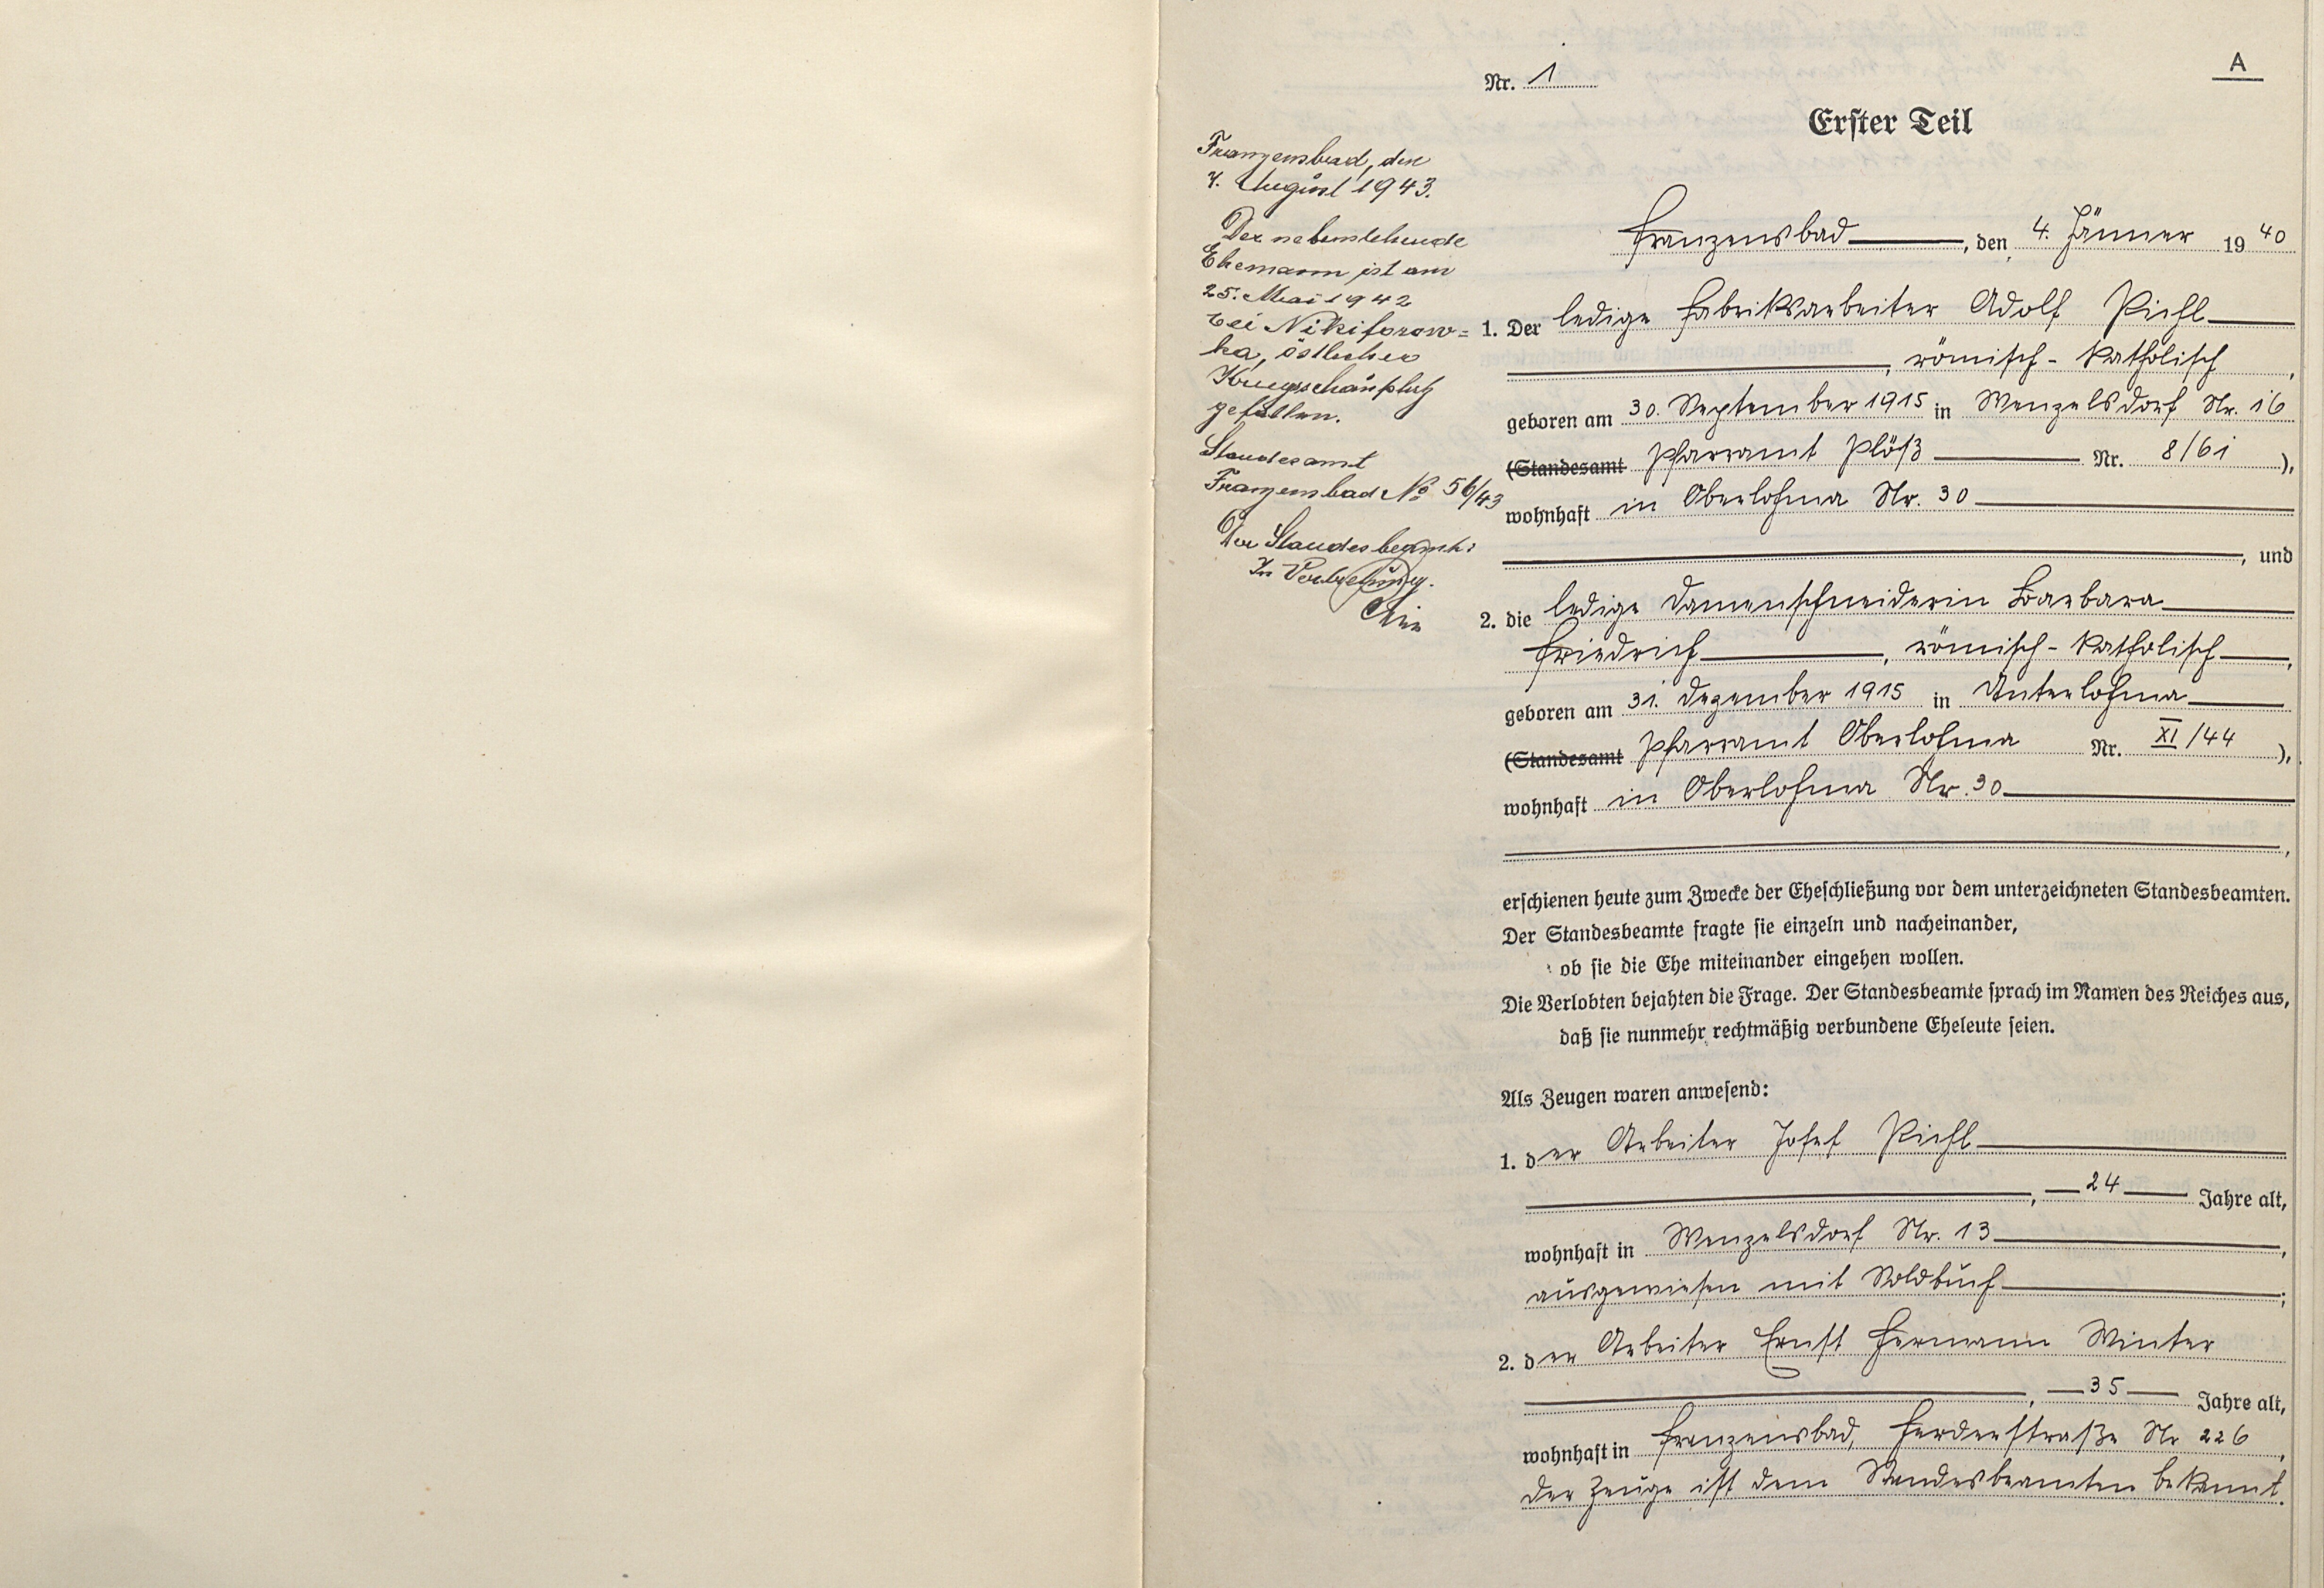 A
Nr. 1
Erster Teil
Franzensbad, den
7. August 1943.
Der nebenstehende
Ehemann ist am
25. Mai 1942
bei Nikiforow=
ka, östlicher
Kriegsschauplatz
gefallen.
Standesamt
Franzensbad No 56/43
Der Standesbeamte:
In Vertretung.
Franzensbad, den 4. Jänner 1940
1. Der ledige Fabriksarbeiter Adolf Pichl
, römisch-katholisch,
geboren am 30. September 1915 in Wenzelsdorf Nr. 16
(Standesamt Pfarramt Plöß Nr. 8/61),
wohnhaft in Oberlohma Nr. 30
, und
2. die ledige Damenschneiderin Barbara
Friedrich, römisch-katholisch,
geboren am 31. Dezember 1915 in Unterlohma
(Standesamt Pfarramt Oberlohma Nr. XI/44),
wohnhaft in Oberlohma Nr. 30
,
erschienen heute zum Zwecke der Eheschließung vor dem unterzeichneten Standesbeamten.
Der Standesbeamte fragte sie einzeln und nacheinander,
ob sie die Ehe miteinander eingehen wollen.
Die Verlobten bejahten die Frage. Der Standesbeamte sprach im Namen des Reiches aus,
daß sie nunmehr rechtmäßig verbundene Eheleute seien.
Als Zeugen waren anwesend:
1. der Arbeiter Josef Pichl
, 24 Jahre alt,
wohnhaft in Wenzelsdorf Nr. 13,
ausgewiesen mit Soldbuch;
2. der Arbeiter Ernst Hermann Winter
, 35 Jahre alt,
wohnhaft in Franzensbad, Herderstraße Nr 226,
der Zeuge ist dem Standesbeamten bekannt.